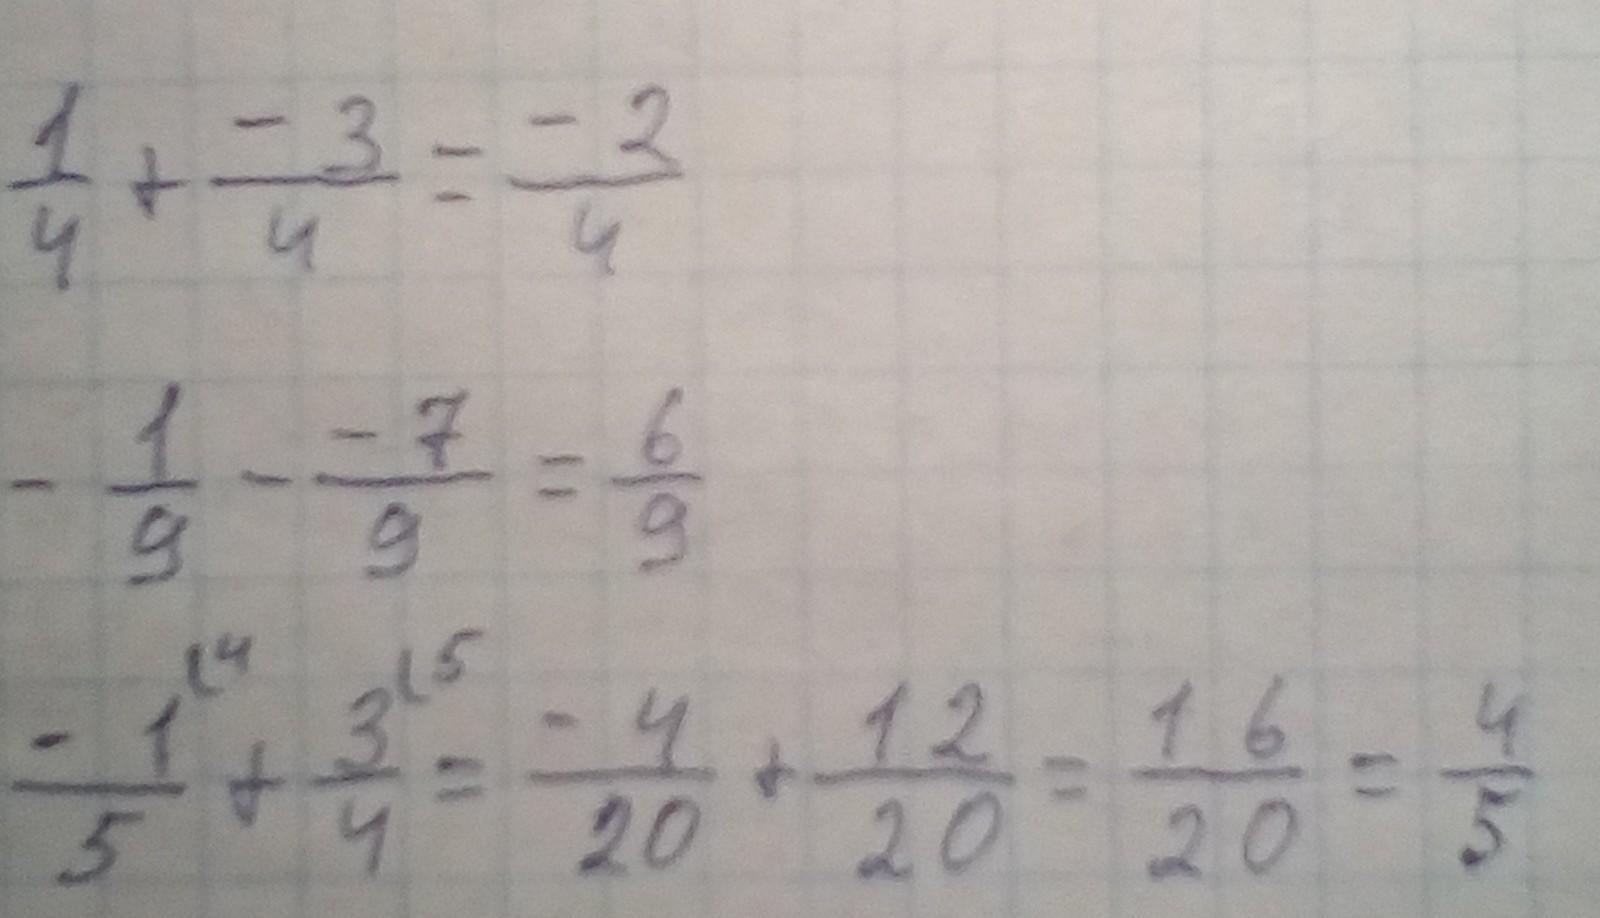 1/4 + -3/4 = -2/4
- 1/9 - -7/9 = 6/9
-1/5 (4 + 3/4 (5 = -4/20 + 12/20 = 16/20 = 4/5